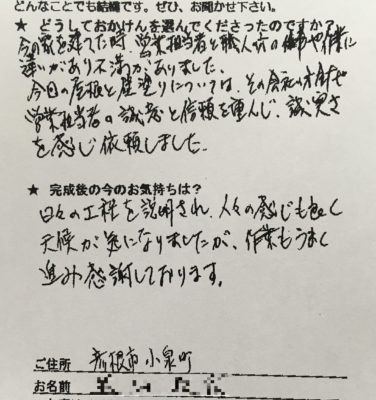 どんなことでも結構です。ぜひ、お聞かせ下さい。
★ どうしておかけんを選んでくださったのですか?
今の家を建てた時、営業担当者と職人方の仕事や作業に
違いがあり不満がありました。
今回の屋根と壁塗りについては、その会社の方針や
営業担当者の誠意と信頼を重んじ、誠実さ
を感じ依頼しました。
★ 完成後の今のお気持ちは?
日々の工程を説明され、人々の感じも良く
天候が気になりましたが、作業もうまく
進み感謝しております。
ご住所 彦根市小泉町
お名前